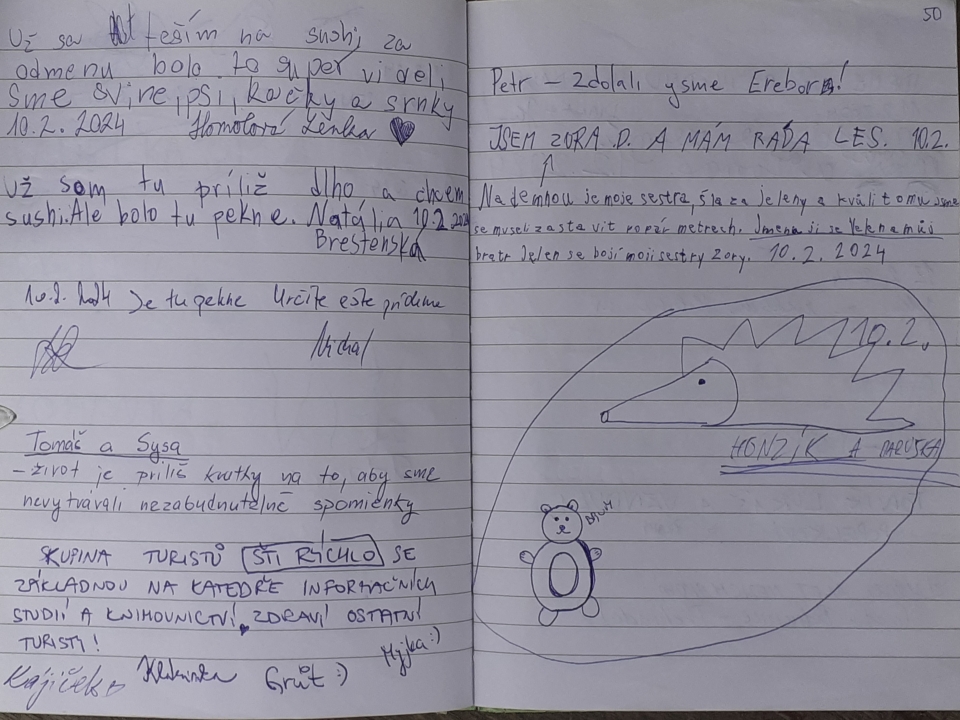 Už sa teším na sushi, za
odmenu bolo to super videli
sme svine, psi, kačky a srnky
10.2.2024 Homolová Lenka
Už som tu príliž dlho a chcem
sushi. Ale bolo tu pekne. Natália 10.2.2024
Brestenská
10.2.2024 Je tu pekne Určite ešte prídeme
Michal
Tomáš a Sysa
- život je príliš krátky na to, aby sme
nevytvárali nezabudnutelné spomienky
SKUPINA TURISTŮ ŠTÍ RYCHLO SE
ZÁKLADNOU NA KATEDŘE INFORMAČNÍCH
STUDIÍ A KNIHOVNICTVÍ ZDRAVÍ OSTATNÍ
TURISTY!
Kájiček Grůt :) Myjka :)
50
Petr - Zdolali jsme Erebor!
JSEM ZORA D. A MÁM RÁDA LES. 10.2.
Nademnou je moje sestra, šla za jeleny a kvůli tomu jsme
se museli zastavit po pár metrech. Jmenuji se Helena můj
bratr Jelen se bojí mojí sestry Zory. 10.2.2024
10.2.
HONZÍK A
BRUM